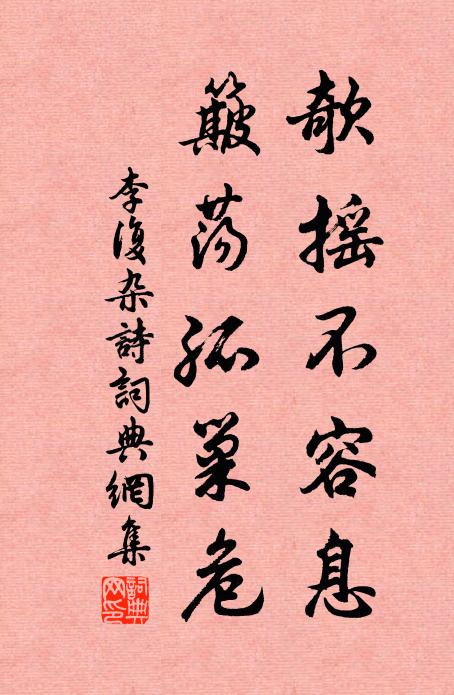 欹摇不容息
簸荡孤巢危
李復杂詩詞典網集
詞典网印